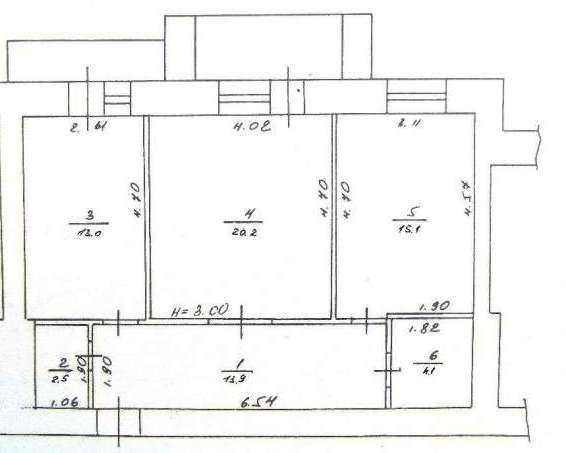 2.61
4.02
3.11
4.70
4.70
4.70
4.57
3
13.0
4
20.2
5
15.1
H=3.00
1.90
1.82
2
2.5
1.90
1.90
1
13.9
6
4.1
1.06
6.54